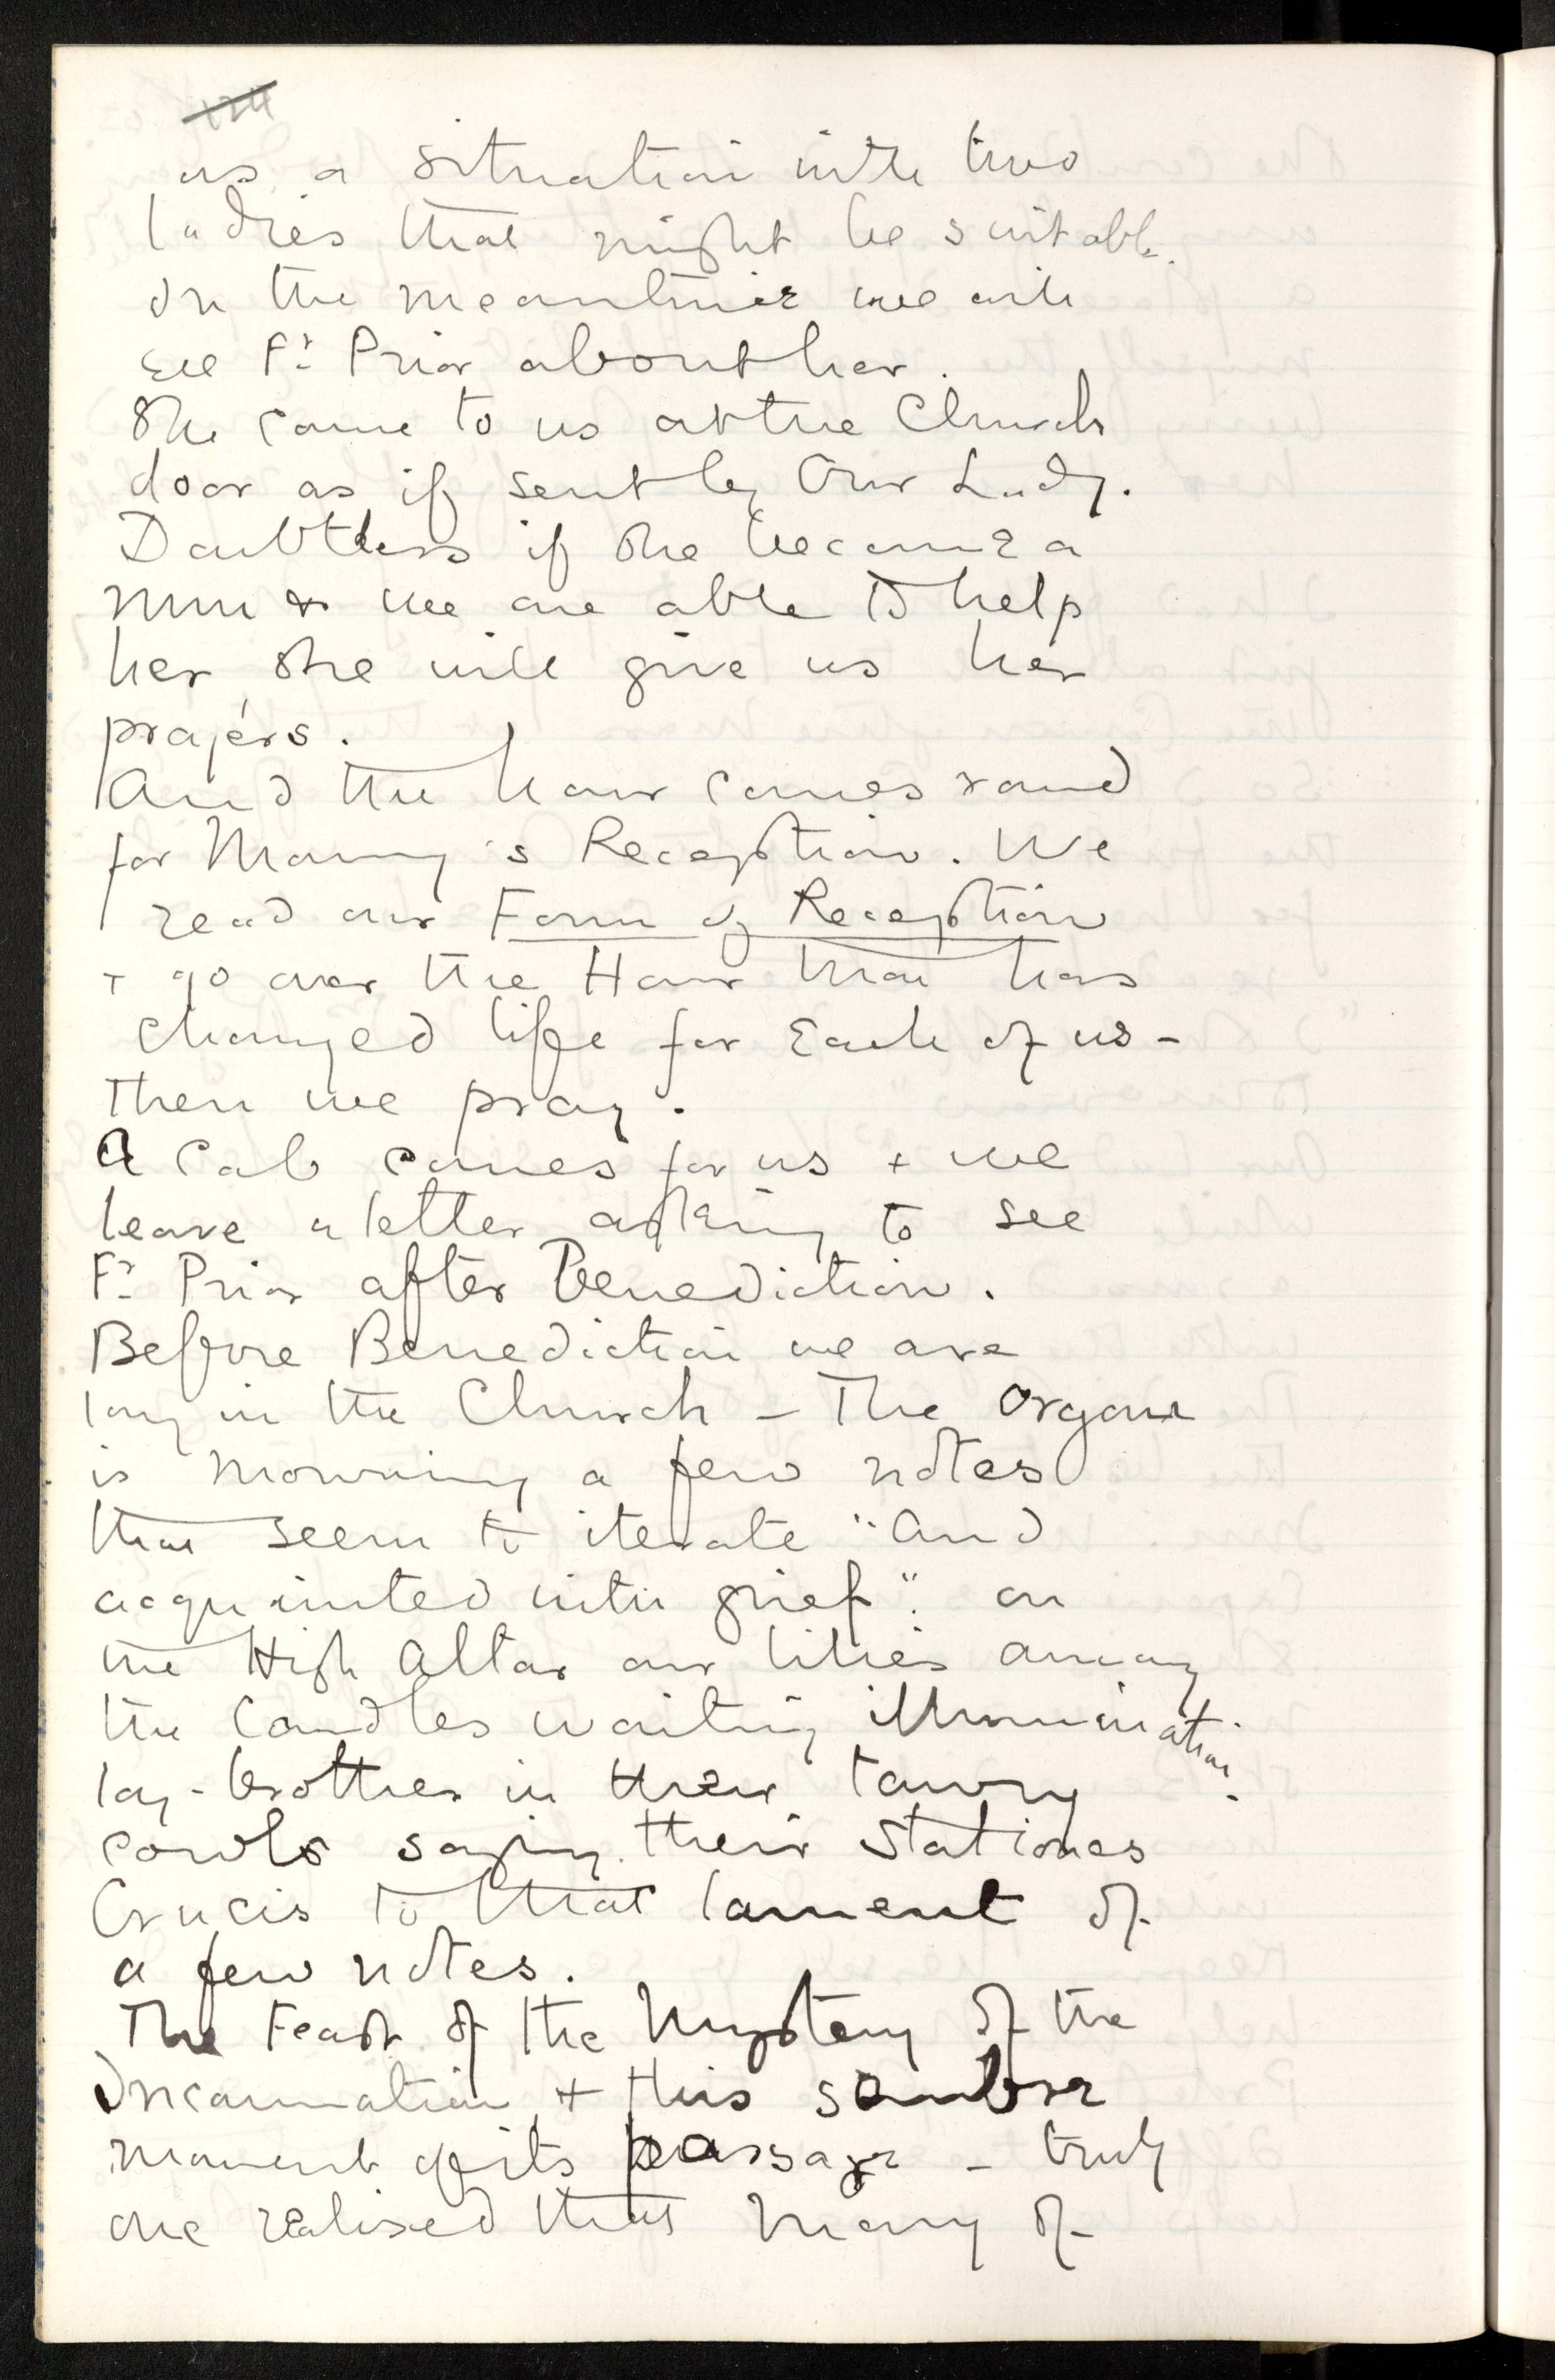 us a situation with two
ladies that might be suitable.
In the meantime we will
see Fr Prior about her.
She came to us at the Church
door as if sent by Our Lady.
Doubtless if she become a
nun & we are able to help
her she will give us her
prayers.
And the hour comes round
for 's Reception. We
read our Form of Reception
+ go over the Hour that has
changed life for Each of us -
Then we pray.
A cab comes for us + we
leave a letter asking to see
Fr Prior after Benediction.
Before Benediction we are
long in the Church - The Organ
is mourning a few notes
that seem to iterate "And
acquainted with grief". On
the High Altar our lilies among
the Candles waiting illumination.
lay-brothers in their tawny
cowls saying their Stationes
Crucis to that lament of
a few notes.
The Feast of the Mystery of the
Incarnation + this sombre
moment of its passage - truly
one realised that many of